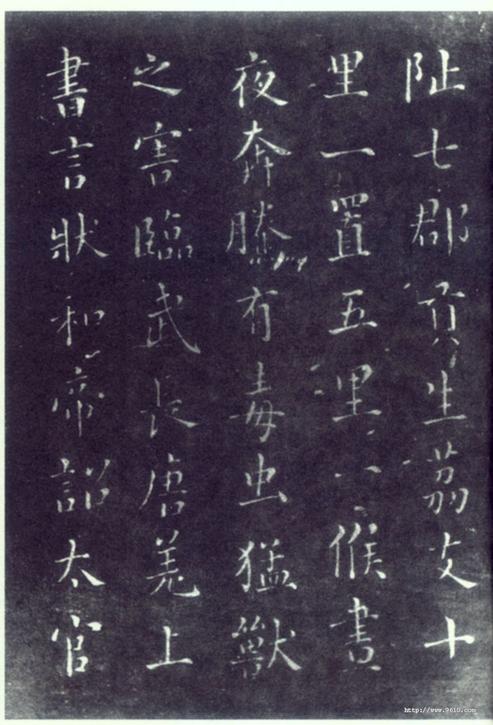 阯七郡貢生荔支十
里一置五里一候書
夜奔騰有毒虫猛獸
之害臨武長唐羌上
書言狀和帝詔太官
http://www.9610.com